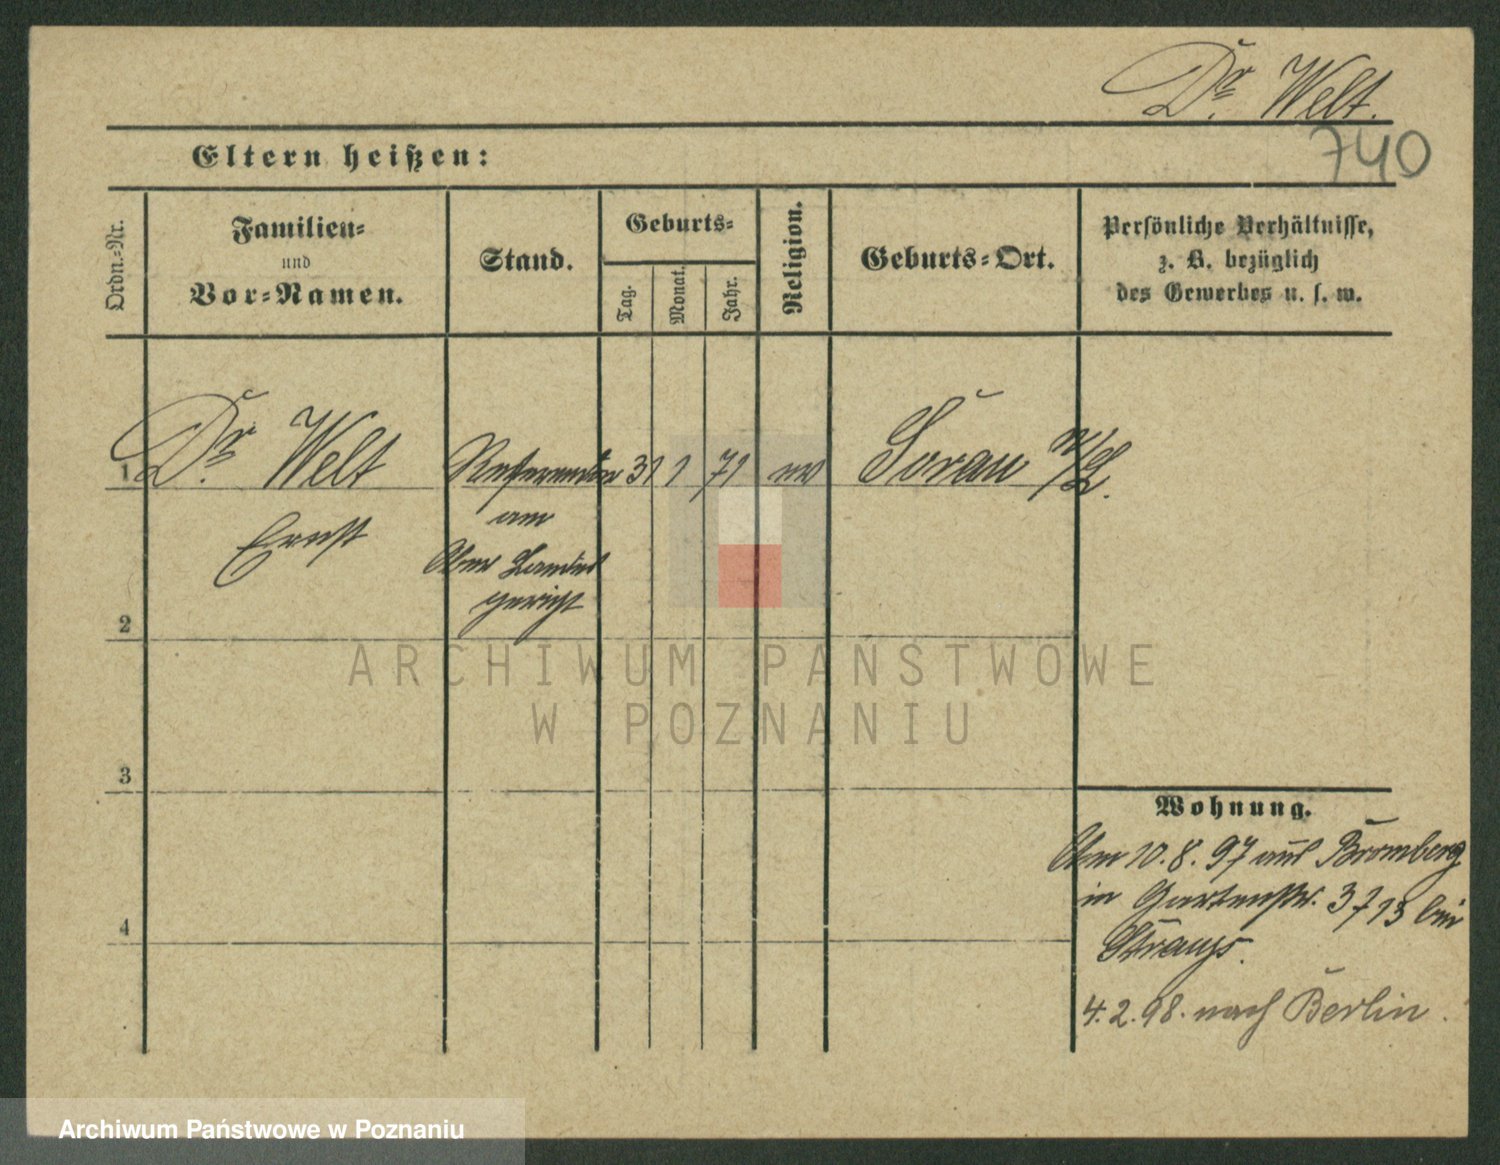 Dr. Welt.
740
Eltern heißen:
Ordn.-Nr.
Familien-
und
Vor-Namen.
Stand.
Geburts-
Tag.
Monat.
Jahr.
Religion.
Geburts-Ort.
Persönliche Verhältnisse,
z. B. bezüglich
des Gewerbes u. s. w.
1 Dr. Welt Referendar 31 1 71 ev Sorau N/L.
Ernst am
Ober Landes
gericht
2
3
4
ARCHIWUM PAŃSTWOWE
W POZNANIU
Wohnung.
Am 10.8.97 aus Bromberg
in Gartenstr. 3 713 bei
Strauß.
4.2.98. nach Berlin.
Archiwum Państwowe w Poznaniu